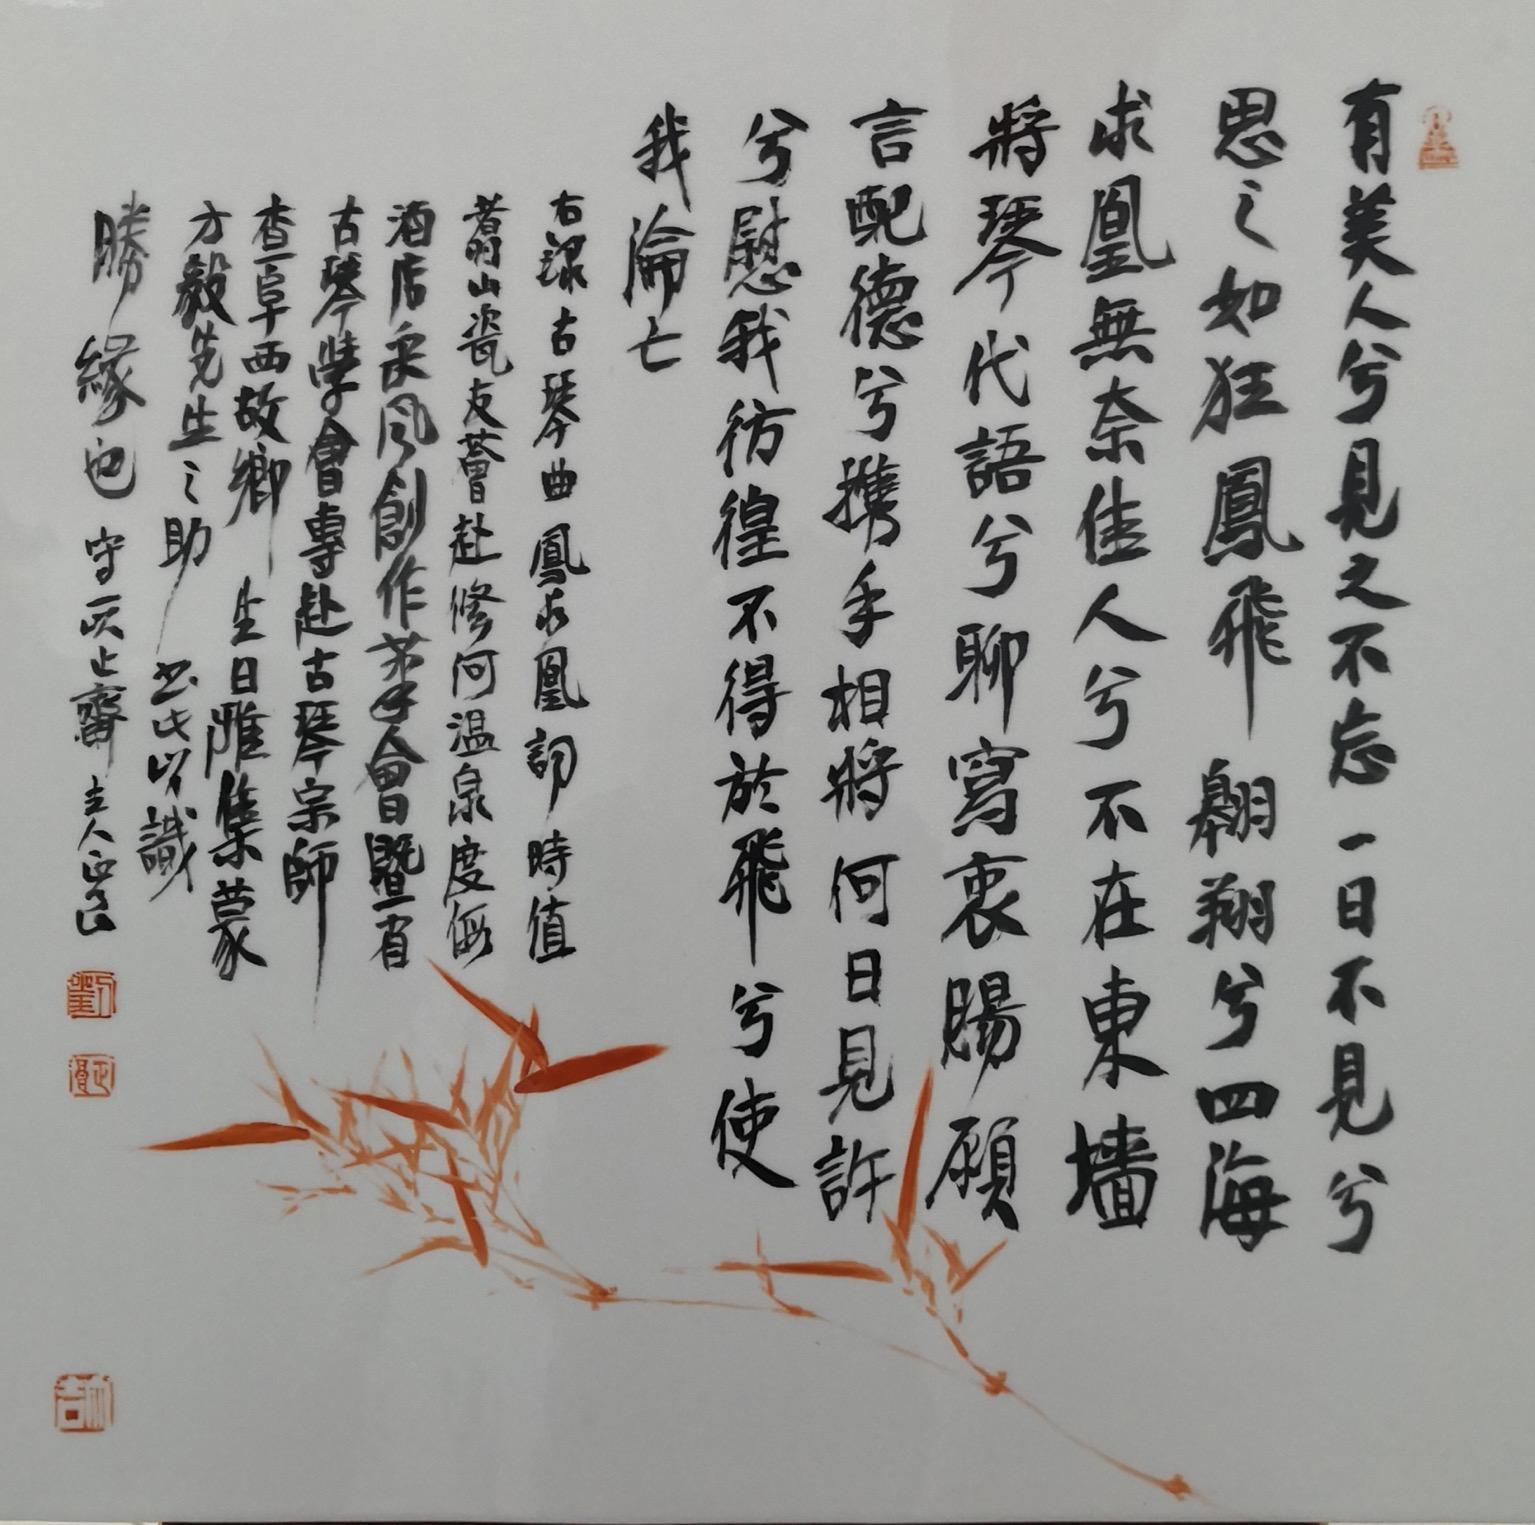 有美人兮見之不忘一日不見兮
思之如狂鳳飛翱翔兮四海
求凰無奈佳人兮不在東墻
將琴代語兮聊寫衷腸願
言配德兮攜手相將何日見許
兮慰我彷徨不得於飛兮使
我淪亡
右錄古琴曲鳳求凰詞時值
翥山瓷友薈赴修河溫泉度假
酒店采風創作筆會暨省
古琴學會專赴古琴宗師
查阜西故鄉生日雅集蒙
方毅先生之助書此以識
勝緣也守一止齋主人